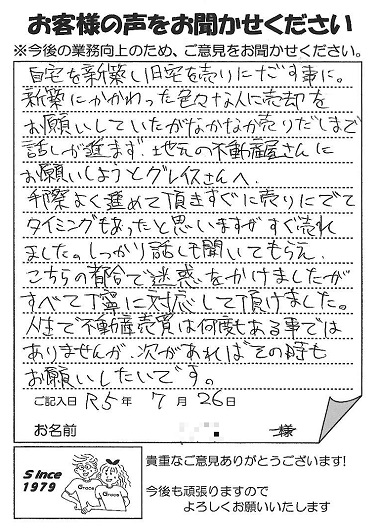 お客様の声をお聞かせください
※今後の業務向上のため、ご意見をお聞かせください。
自宅を新築し旧宅を売りにだす事に。
新築にかかわった色々な人に売却を
お願いしていたがなかなか売りだしまで
話しが進まず、地元の不動産屋さんに
お願いしようとグレイスさんへ。
手際よく進めて頂きすぐに売りにでて
タイミングもあったと思いますがすぐ売れ
ました。しっかり話しも聞いてもらえ、
こちらの都合で迷惑をかけましたが
すべて丁寧に対応して頂けました。
人生で不動産売買は何度もある事では
ありませんが、次があればその時も
お願いしたいです。
ご記入日 R5年 7月 26日
お名前 様
Since
1979
Grace
Grace
貴重なご意見ありがとうございます!
今後も頑張りますので
よろしくお願いいたします